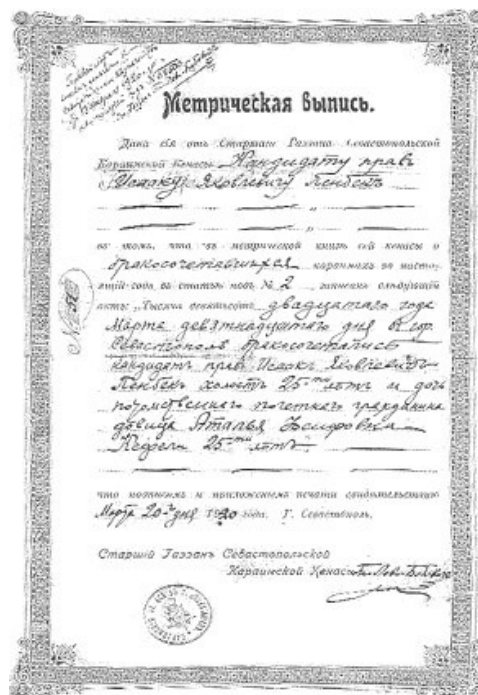 Метрическая выпись.
Дана сія отъ Старшаго Газзана Севастопольской
Караимской Кенасы Кандидату правъ
Исааку Яковлевичу
въ томъ, что въ метрической книгѣ сей кенасы о
бракосочетавшихся караимахъ за настоя-
щій годъ въ статьѣ подъ № 2 записанъ слѣдующій
актъ: „Тысяча девятьсотъ двадцатаго года
Марта девятнадцатаго дня въ гор.
Севастополѣ бракосочетались
кандидатъ правъ Исаакъ Яковлевичъ
холостъ 25-ти лѣтъ и дочь
потомственнаго почетнаго гражданина
дѣвица
25-ти лѣтъ
что подписью и приложеніемъ печати свидѣтельствую
Марта 20-го дня 1920 года. Г. Севастополь.
Старшій Газзанъ Севастопольской
Караимской Кенасы